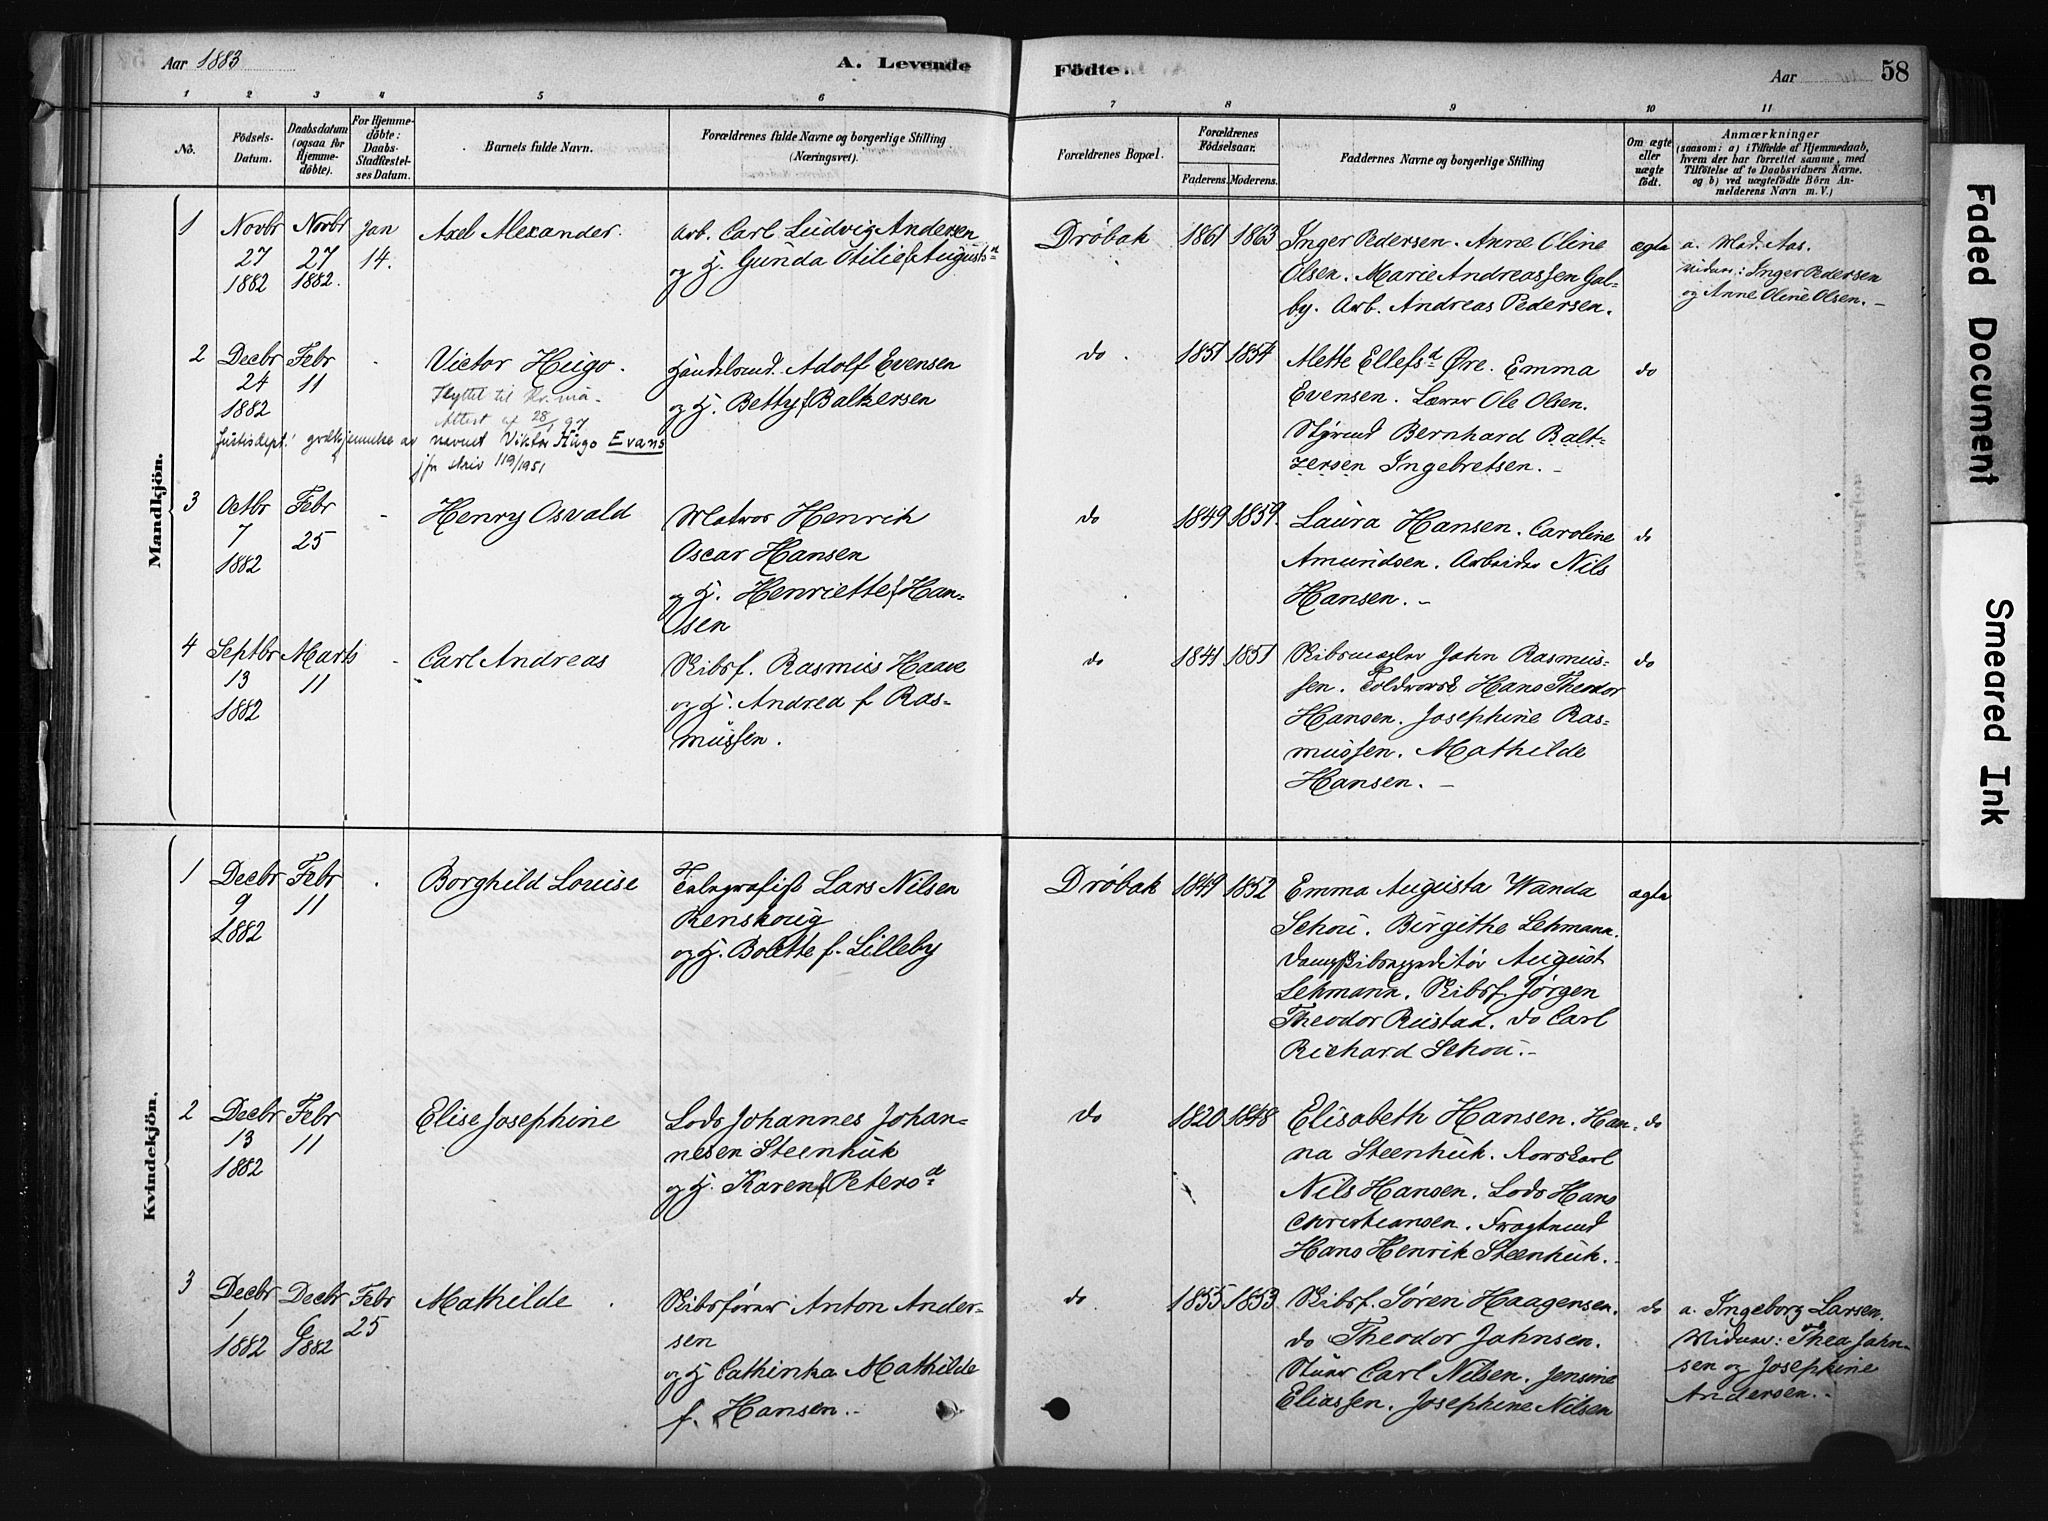 Aar 1883
A. Levende
Födte.
Aar
58
1 2 3 4 5 6 7 8 9 10 11
No.
Födsels-
Datum.
Daabsdatum
(ogsaa for
Hjemme-
döbte).
For Hjemme-
döbte:
Daabs-
Stadfæstel-
ses Datum.
Barnets fulde Navn.
Forældrenes fulde Navne og borgerlige Stilling
(Næringsvei).
Forældrenes Bopæl.
Forældrenes
Födselsaar.
Faderens. Moderens.
Faddernes Navne og borgerlige Stilling
Om ægte
eller
uægte
födt.
Anmærkninger
(saasom: a) i Tilfælde af Hjemmedaab,
hvem der har forrettet samme, med
Tilföielse af to Daabsvidners Navne.
og b) ved uægtefödte Börn An-
melderens Navn m. V.)
Mandkjön.
1
Novbr
27
1882
Novbr
27
1882.
Jan
14.
Axel Alexander.
Arb. Carl Ludvig Andersen
og H. Gunda Otilie f Augustsd
Dröbak
1861
1863
Inger Pedersen. Anne Oline
Olsen. Marie Andreassen Gul-
by. Arb. Andreas Pedersen.
ægte
a. Mad. Aas.
Vidner: Inger Pedersen
og Anne Oline Olsen. -
2
Decbr
24
1882
Febr
11
-
Victor Hugo.
Flyttet til Kr.nia
Attest af 28/1 97
Justisdept.' godkjennelse av navnet Viktor Hugo Evans
jfr skriv 119/1951
Handelsmd. Adolf Evensen
og H. Betty f Baltzersen
do.
1851
1854
Mette Ellefsd Øre. Emma
Evensen. Lærer Ole Olsen.
Styrmd Bernhard Balt-
zersen Ingebretsen. -
do
3
Octbr
7
1882
Febr
25
-
Henry Osvald
Matros Henrik
Oscar Hansen
og H. Henriette f Han-
sen
do
1849
1859.
Laura Hansen. Caroline
Amundsen. Arbeider Nils
Hansen. -
do
4
Septbr
13
1882
Marts
11
-
Carl Andreas
Skibsf. Rasmus Haave
og H. Andrea f Ras-
mussen.
do
1841
1851
Skibsmægler John Rasmus-
sen. Toldrorsk Hans Theodor
Hansen. Josephine Ras-
mussen. Mathilde
Hansen. -
do
Kvindekjön.
1
Decbr
9
1882
Febr
11
-
Borghild Louise
Telegrafist Lars Nilsen
Renskoug
og H. Bolette f. Lilleby
Dröbak
1849
1852
Emma Augusta Wanda
Schou. Birgithe Lehmann.
Dampskibsexpeditör August
Lehmann. Skibsf. Jörgen
Theodor Rustad. do Carl
Richard Schou. -
ægte
2
Decbr
13
1882
Febr
11
Elise Josephine
Lods Johannes Johan-
nesen Steenhuk
og H. Karen f Petersd
do
1820
1848
Elisabeth Hansen. Han-
na Steenhuk. Rorskarl
Nils Hansen. Lods Hans
Christiansen. Fragtmd
Hans Henrik Steenhuk.
do
3
Decbr
1
1882
Decbr
6
1882
Febr
25
Mathilde
Skibsförer Anton Ander-
sen
og H Cathinka Mathilde
f. Hansen. -
do
1855
1853.
Skibsf. Sören Haagensen.
do Theodor Jahnsen.
Stuer Carl Nilsen. Jensine
Eliassen. Josephine Nilsen
do
a. Ingeborg Larsen.
Vidner: Thea Jahn-
sen og Josephine
Andersen. -
Faded Document
Smeared Ink